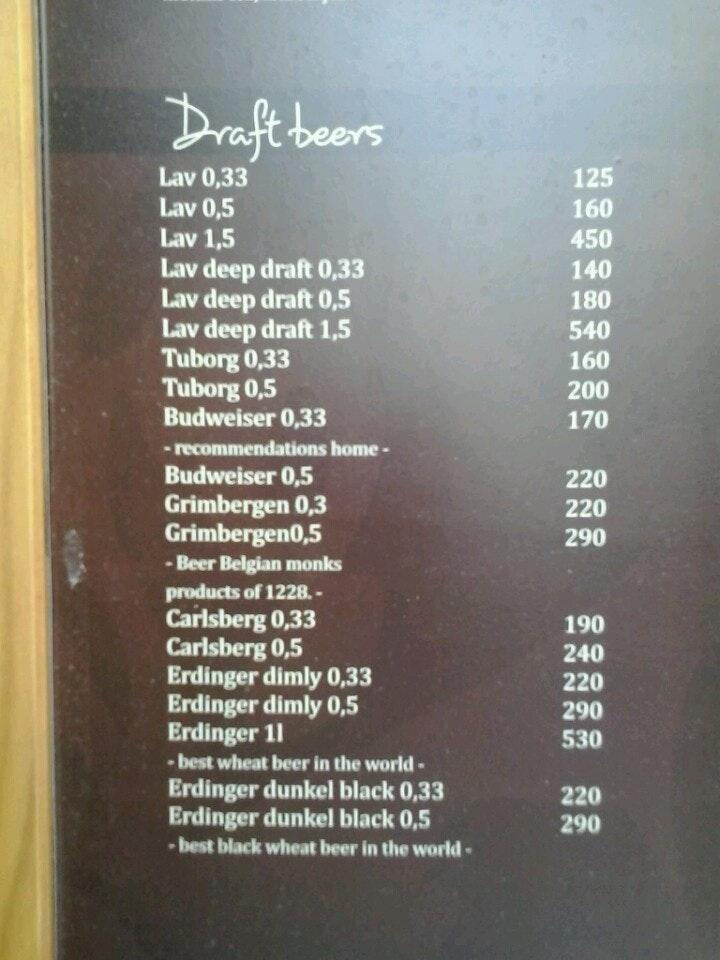 Draft beers
Lav 0,33 125
Lav 0,5 160
Lav 1,5 450
Lav deep draft 0,33 140
Lav deep draft 0,5 180
Lav deep draft 1,5 540
Tuborg 0,33 160
Tuborg 0,5 200
Budweiser 0,33 170
- recommendations home -
Budweiser 0,5 220
Grimbergen 0,3 220
Grimbergen0,5 290
- Beer Belgian monks
products of 1228. -
Carlsberg 0,33 190
Carlsberg 0,5 240
Erdinger dimly 0,33 220
Erdinger dimly 0,5 290
Erdinger 1l 530
- best wheat beer in the world -
Erdinger dunkel black 0,33 220
Erdinger dunkel black 0,5 290
- best black wheat beer in the world -